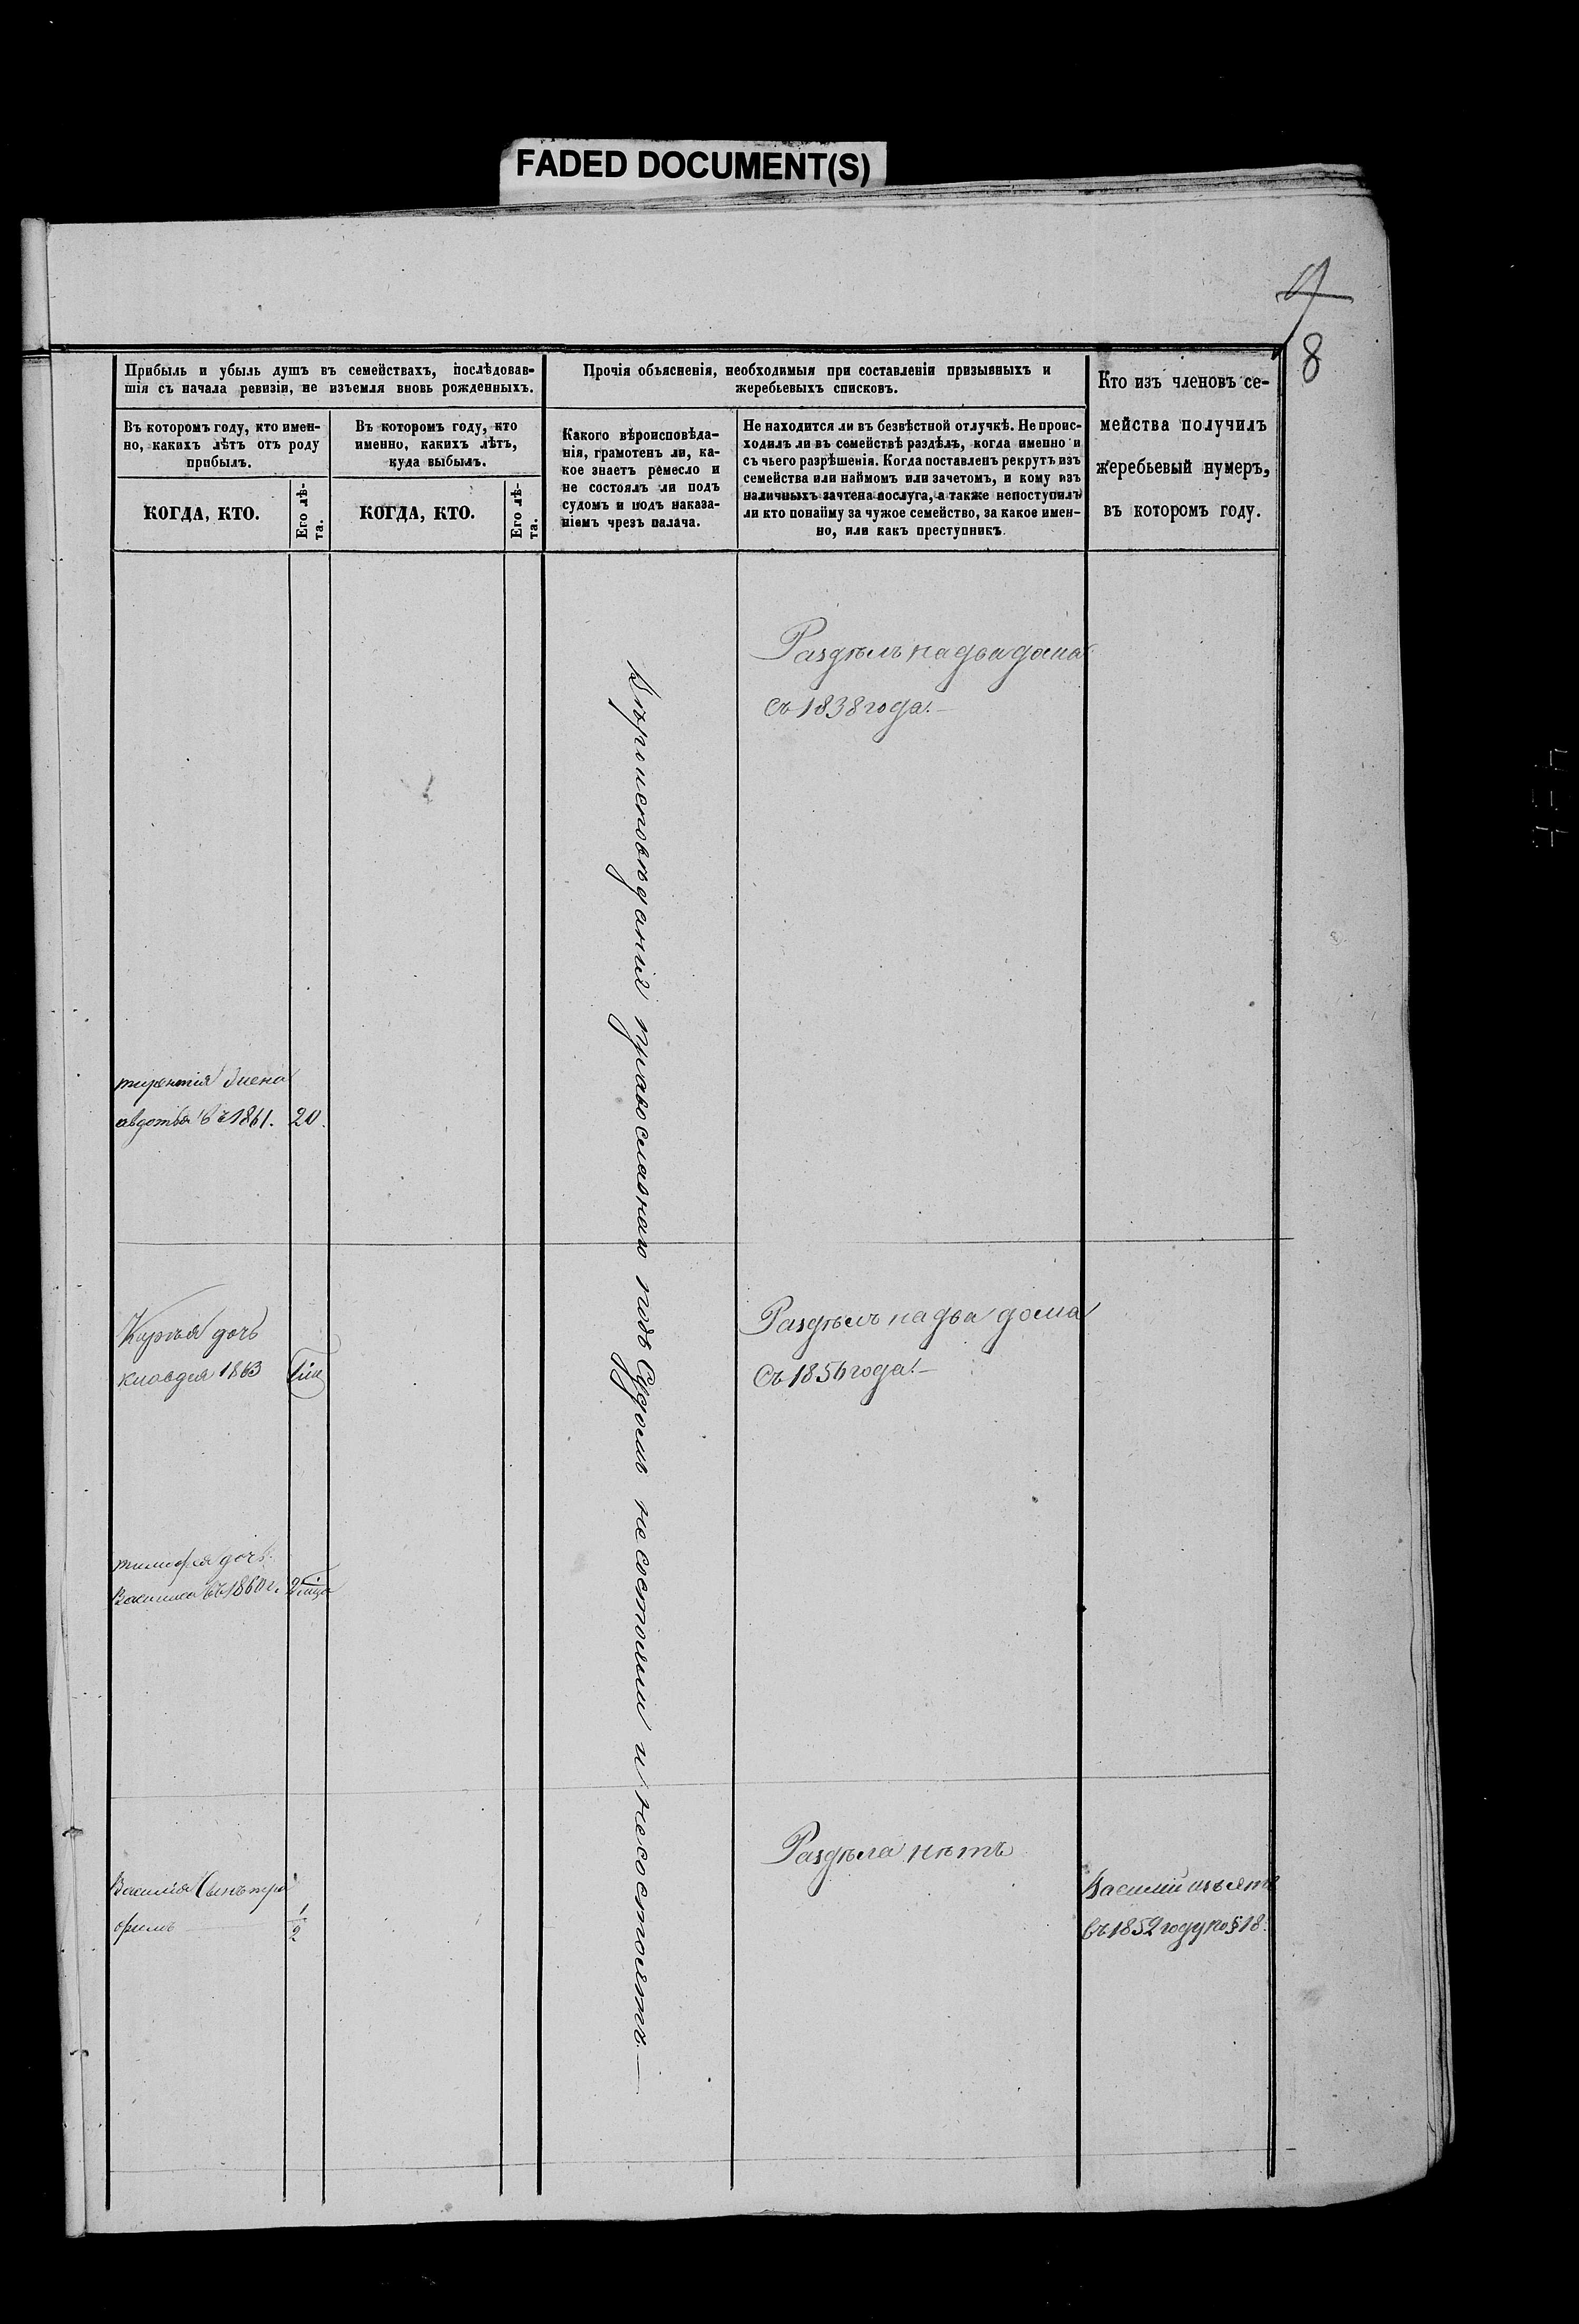 FADED DOCUMENT(S)
8
Прибыль и убыль душъ въ семействахъ, послѣдовав-
шія съ начала ревизіи, не изъемля вновь рожденныхъ.
Прочія объясненія, необходимыя при составленіи призывныхъ и
жеребьевыхъ списковъ.
Кто изъ членовъ се-
мейства получилъ
жеребьевый нумеръ,
въ которомъ году.
Въ которомъ году, кто имен-
но, какихъ лѣтъ отъ роду
прибылъ.
Въ которомъ году, кто
именно, какихъ лѣтъ,
куда выбылъ.
Какого вѣроисповѣда-
нія, грамотенъ ли, ка-
кое знаетъ ремесло и
не состоялъ ли подъ
судомъ и подъ наказа-
ніемъ чрезъ палача.
Не находится ли въ безвѣстной отлучкѣ. Не проис-
ходилъ ли въ семействѣ раздѣлъ, когда именно и
съ чьего разрѣшенія. Когда поставленъ рекрутъ изъ
семейства или наймомъ или зачетомъ, и кому изъ
наличныхъ зачтена послуга, а также непоступилъ
ли кто понайму за чужое семейство, за какое имен-
но, или какъ преступникъ.
КОГДА, КТО.
Его лѣ-
та.
КОГДА, КТО.
Его лѣ-
та.
Раздѣлъ на два дома
съ 1838 года.—
Вѣроисповѣданія православнаго подъ Судомъ не состояли и не состоятъ.—
терентія жена
авдотья въ 1861. 20.
Раздѣлъ на два дома
Съ 1856 года.—
Карпа дочь
клавдия 1863
дочь
Василиса въ 1860 г. 2
Раздѣла нѣтъ
Василія Сынъ тро
фимъ 1/2
Василій изъятъ
въ 1852 году по § 18.